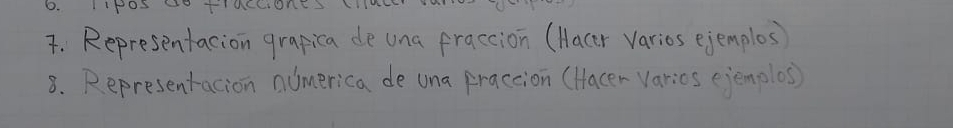 6. Tipos de fracciones (Hacer varios ejemplos)
7. Representación grafica de una fracción (Hacer Varios ejemplos)
8. Representación númerica de una fracción (Hacer Varios ejemplos)